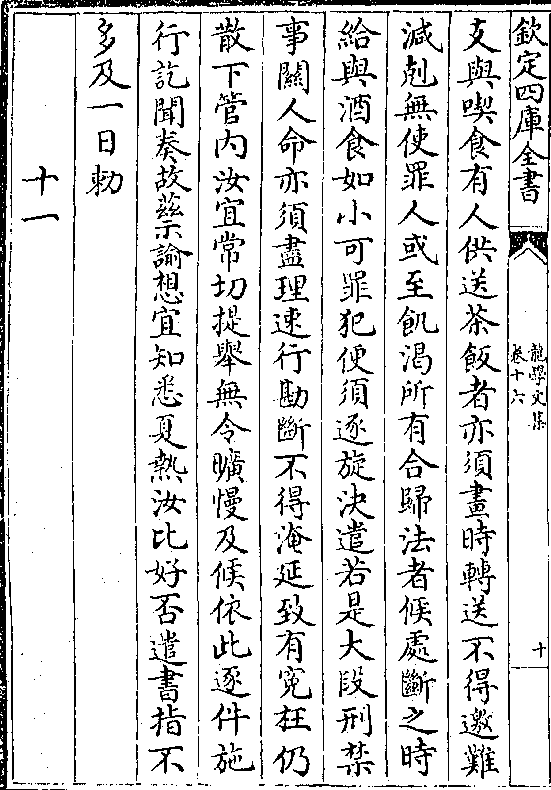 欽定四庫全書
龍學文集
卷十六
十
支與喫食有人供送茶飯者亦須晝時轉送不得邀難
減剋無使罪人或至飢渴所有合歸法者候處斷之時
給與酒食如小可罪犯便須逐旋決遣若是大段刑禁
事關人命亦須盡理速行勘斷不得淹延致有寃枉仍
散下管内汝宜常切提舉無令曠慢及候依此逐件施
行訖聞奏故兹示諭想宜知悉夏熱汝比好否遣書指不
多及一日勑
十一